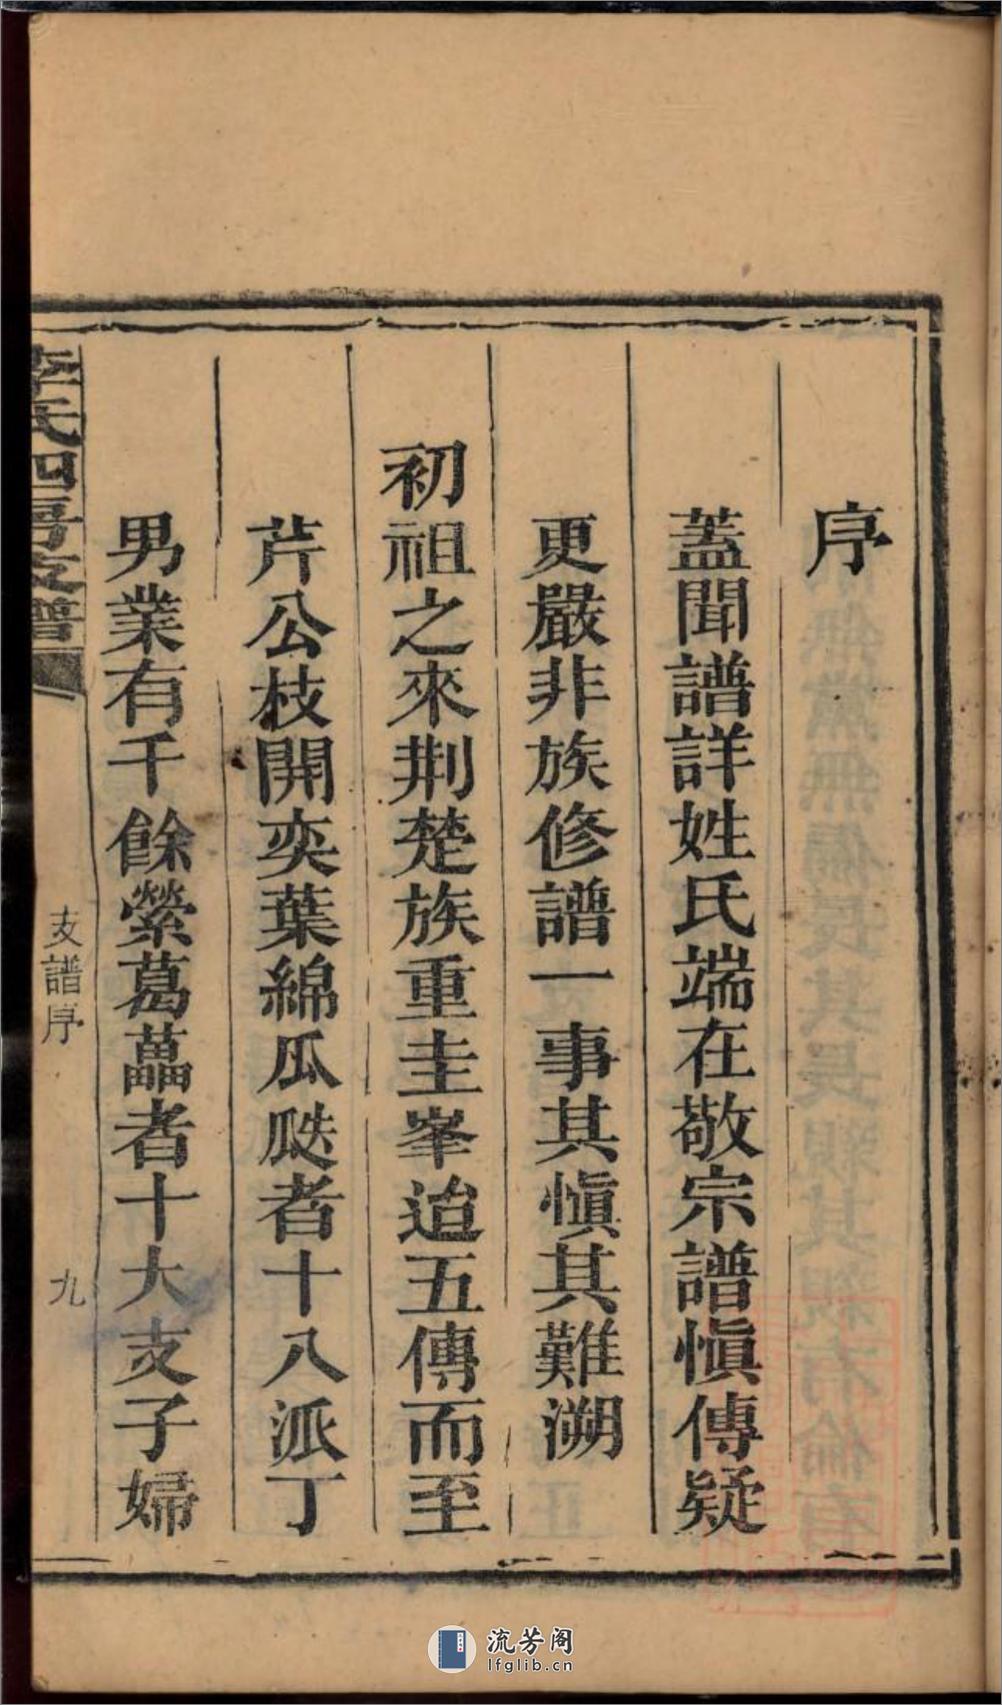 序
蓋聞譜詳姓氏端在敬宗譜愼傳疑
更嚴非族修譜一事其愼其難溯
初祖之來荆楚族重圭峯迨五傳而至
芹公枝開奕葉綿瓜瓞者十八派丁
男業有千餘縈葛藟者十大支子婦
李氏四房支譜
支譜序
九
流芳阁
lfglib.cn